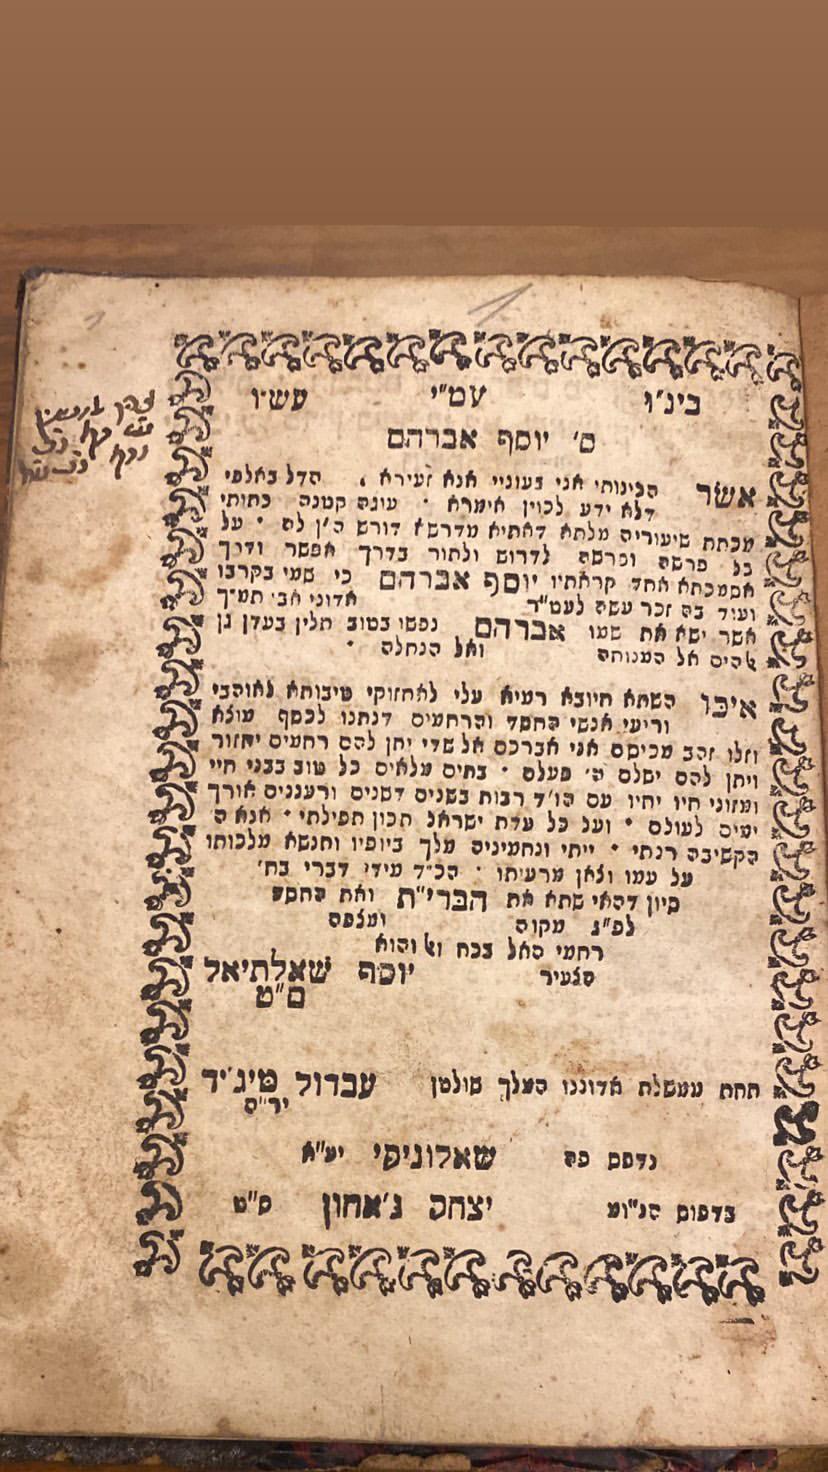 בינ'ו עמ"י עש"ו
ס' יוסף אברהם
אשר הכינותי אני בעוניי אנא זעירא, הדל באלפי
דלא ידע לכוין אימרא • עוגה קטנה כתותי
מכתת שיעוריה מלתא דאתיא מדרשא דורש ה'ן לה • על
כל פרשה ופרשה לדרוש ולתור בדרך אפשר ודרך
אסמכתא אחד קראתיו יוסף אברהם כי שמי בקרבו
ועוד בה זכר עשה לעט"ר אדוני אבי תמ"ך
אשר ישא את שמו אברהם נפשו בטוב תלין בעדן גן
אלהים אל המנוחה ואל הנחלה •
איבו השתא חיובא רמיא עלי לאחזוקי טיבותא לאוהבי
וריעי אנשי החסד והרחמים דנתנו לכסף מוצא
וזלו זהב מכיסם אני אברכם אל שדי יתן להם רחמים יחזור
ויתן להם ישלם ה' פעלם • בתים מלאים כל טוב בבני חיי
ומזוני חיו יחיו עם הו'ד רבות בשנים דשנים ורעננים אורך
ימים לעולם • ועל כל עדת ישראל תכון תפילתי • אנא ה
הקשיבה רנתי • ייתי ונחמיניה מלך ביופיו ותנשא מלכותו
על עמו וצאן מרעיתו • הכ"ד מידי דברי בח'
סיון דהאי שתא את הברי"ת ואת החסד
לפ"ג מקוה ומצפה
רחמי האל בכח והוא
הצעיר יוסף שאלתיאל
ס"ט
תחת ממשלת אדוננו המלך שולטן עבדול מיג'יד
יר"ה
נדפס פה שאלוניקי יע"א
בדפוס הנ"ומ יצחק ג'אחון ס"ט